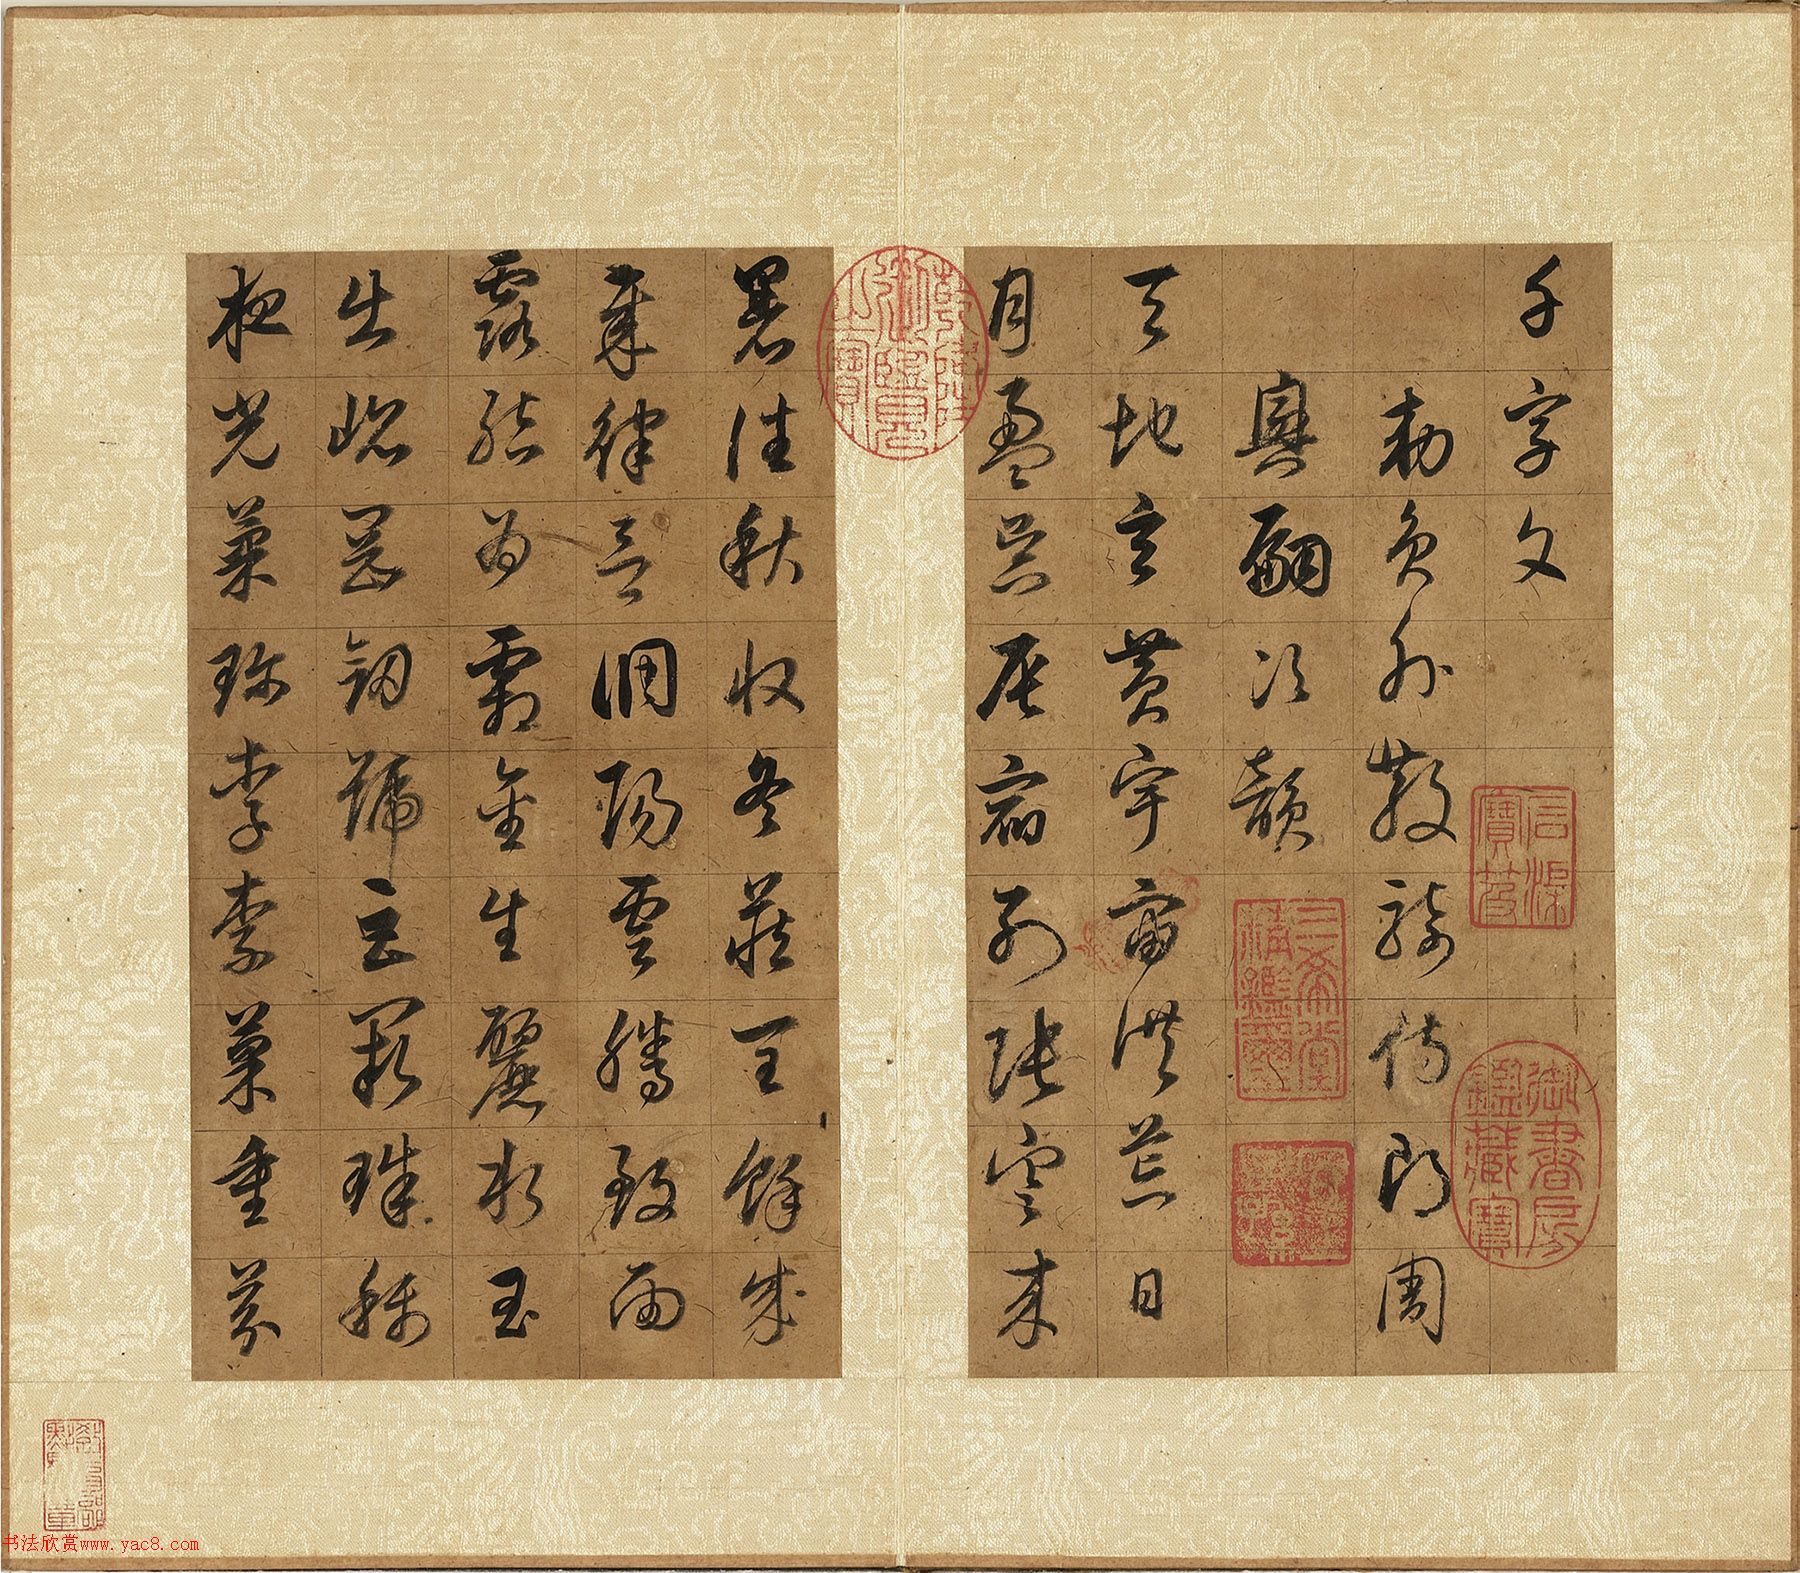 千字文
勑員外散騎侍郎周
興嗣次韻
天地玄黃宇宙洪荒日
月盈昃辰宿列張寒來
暑往秋收冬藏閏餘成
歲律呂調陽雲騰致雨
露結為霜金生麗水玉
出崐岡劒號巨闕珠稱
夜光菓珍李柰菜重芥
石渠寶笈
御書房鑑藏寶
三希堂精鑑璽
嘉慶御覽之寶
书法欣赏www.yac8.com